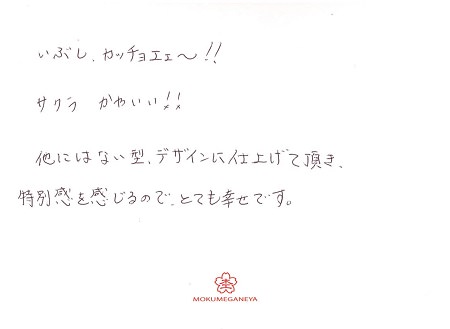 いぶし、カッチョエェ〜!!
サクラ かわいい!!
他にはない型、デザインに仕上げて頂き、
特別感を感じるので、とても幸せです。
MOKUMEGANEYA